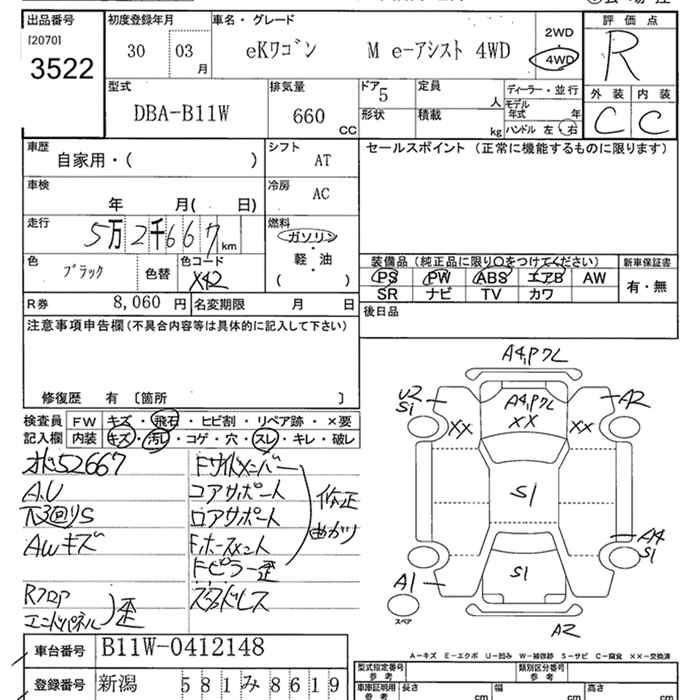 出品番号
[2070]
3522
初度登録年月
30 03 月
車名・グレード
eKワゴン M e-アシスト 4WD
2WD
4WD
評価点
R
外装 内装
C C
型式
DBA-B11W
排気量
660 CC
ドア 5
形状
定員 人
積載 kg
ディーラー・並行
モデル年式 年
ハンドル 左 右
車歴
自家用・( )
シフト
AT
セールスポイント (正常に機能するものに限ります)
車検
年 月( 日)
冷房
AC
走行
5万2千667 km
燃料
ガソリン
・
軽・油
( )
色
ブラック
色替
色コード
X42
装備品 (純正品に限り○をつけてください)
新車保証書
PS PW ABS エアB AW
有・無
SR ナビ TV カワ
R券 8,060 円
名変期限 月 日
後日品
注意事項申告欄(不具合内容等は具体的に記入して下さい)
修復歴 有 〔箇所 〕
検査員記入欄
FW キズ・飛石・ヒビ割・リペア跡・×要
内装 キズ・汚れ・コゲ・穴・スレ・キレ・破レ
52667
A.U
下廻りS
AWキズ
Rフロア
エンドパネル 歪
Fサイドメンバー
コアサポート
ロアサポート
修正
曲がり
Fピラー歪
スタッドレス
A4,Pワレ
U2
S1
A4,Pワレ
XX
XX
XX
A2
S1
A4
S1
A1
S1
スペア
A2
A-キズ E-エクボ U-凹み W-補修跡 S-サビ C-腐食 XX-交換済
車台番号
B11W-0412148
登録番号
新潟 581み8619
型式指定番号
参考
類別区分番号
参考
車庫証明用
参考
長さ cm
幅 cm
高さ cm